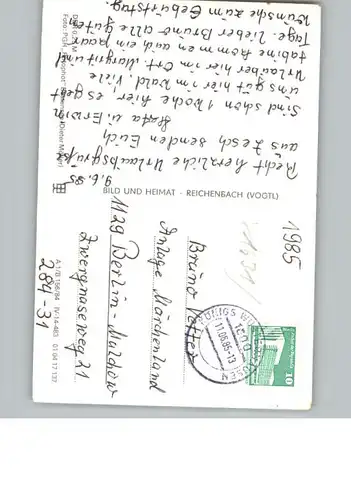 9.6.85
Recht herzliche Urlaubsgrüße
aus Zesch senden Euch
u. Erwin
Sind schon 1 Woche hier, es geht
uns gut hier im Wald. Viele
Urlauber hier im Ort. Margrit und
Sabine kommen auch ein paar
Tage. Lieber Bruno alle guten
Wünsche zum Geburtstag.
BILD UND HEIMAT - REICHENBACH (VOGTL)
A 1/B 156/84 IV-14-483 01 04 17 137
284-31
1985
KÖNIGS WUSTERHAUSEN
11.06.85-13
10
Bruno
Anlage Märchenland
1129 Berlin-Malchow
Zwergnaseweg 21